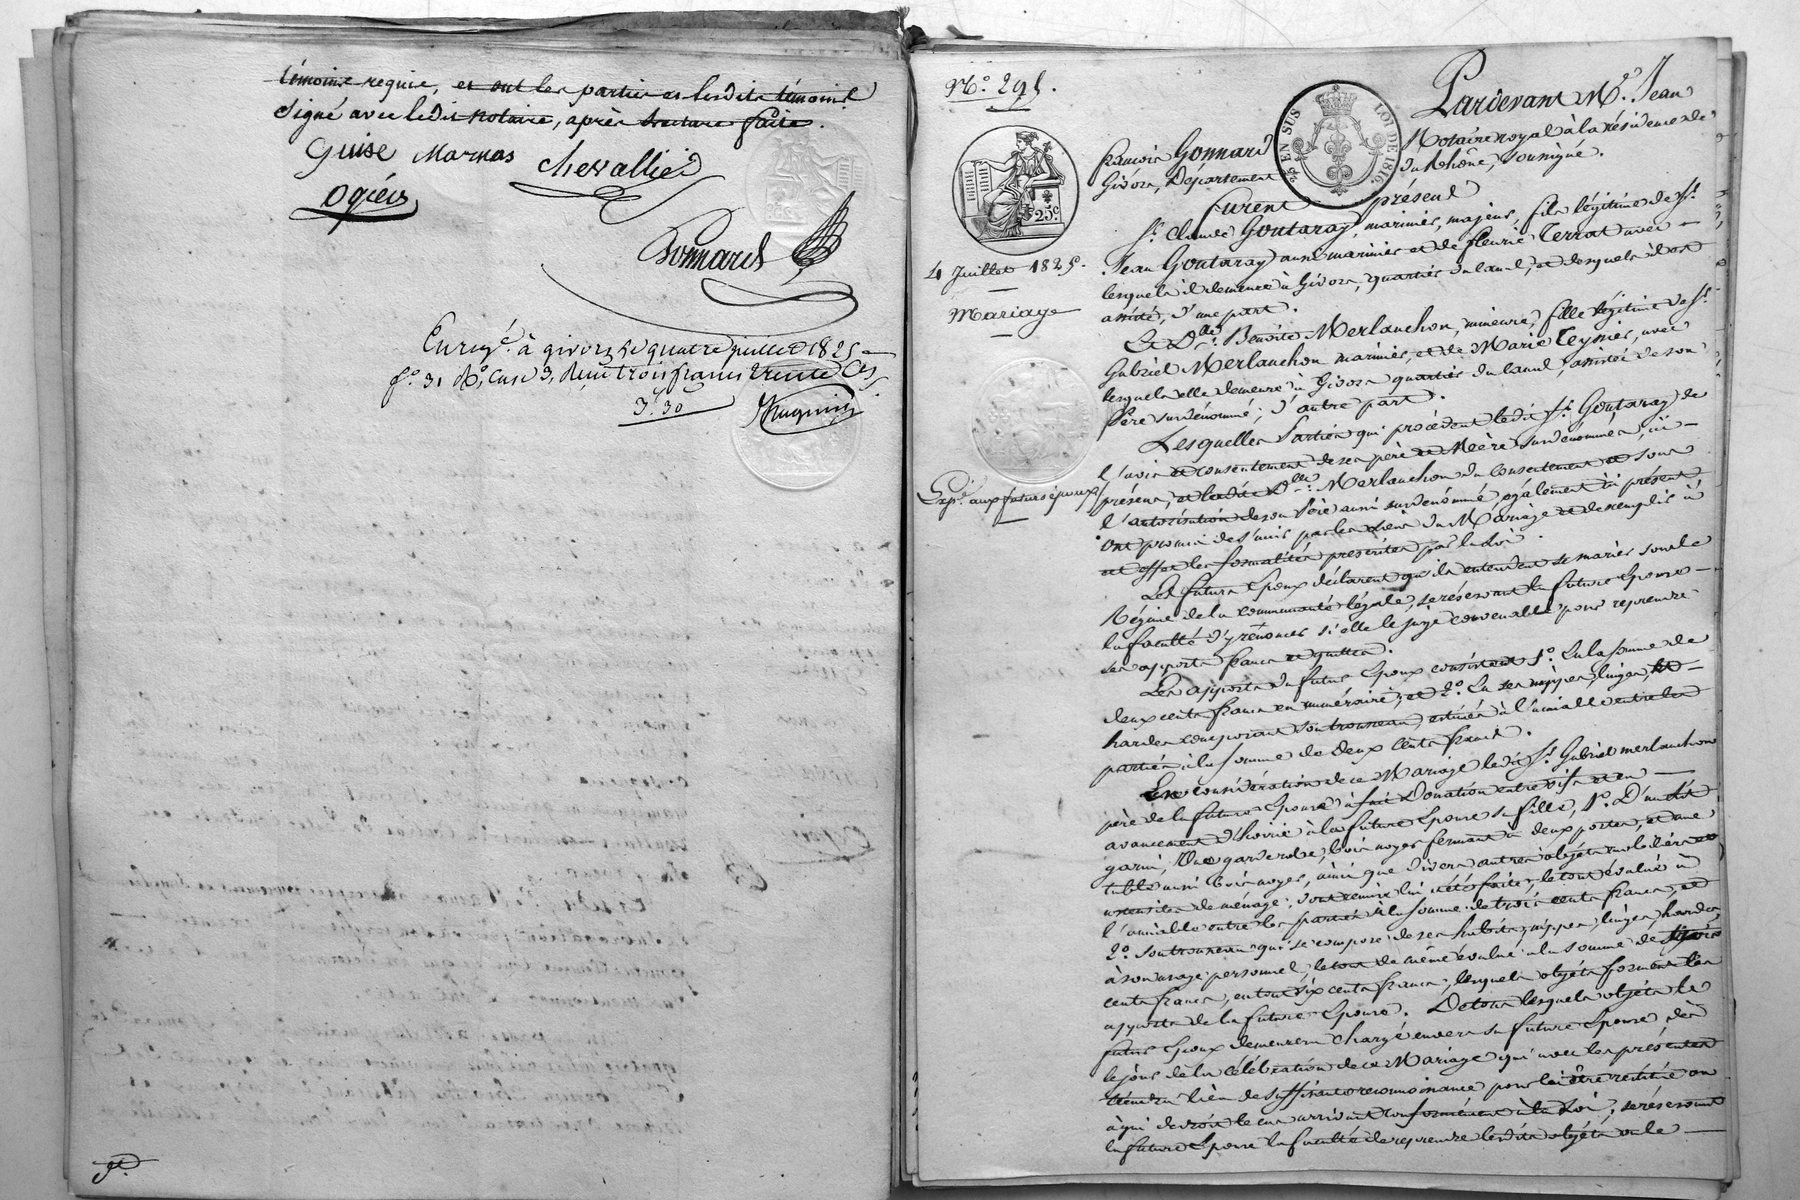 témoins requis, et ont les parties et lesdits témoins
signé avec ledit notaire, après lecture faite.
Guise Marnas Chevallier
Ogier
Gonnard
Enreg.é à givors le quatre juillet 1825
f.o 31 R.o, Case 3, Reçu trois francs trente c.es
3.30
Hugnin
N.o 295.
25c
4 Juillet 1825.
Mariage
Exp.é aux futurs époux
Pardevant M.e Jean
EN SUS LOI DE 1816.
francois Gonnard Notaire royal à la résidence de
Givors, Département du Rhône, soussigné.
furent présent
S.r Claude Goutaray, marinier, majeur, fils légitime de S.r
Jean Goutaray aussi marinier et de fleurie Terrat avec
lesquels il demeure à Givors, quartier du Canal, et desquels il est
assisté, d'une part.
Et D.lle Benoite Merlanchon, mineure, fille légitime de S.r
Gabriel Merlanchon marinier, et de Marie Teyssier, avec
lesquels elle demeure à Givors quartier du Canal, assistée de son
Père susdénommé; d'autre part.
Lesquelles Parties qui procèdent ledit S.r Goutaray de
l'avis et consentement de ses père et Mère susdénommés, ici
présens, et ladite D.lle Merlanchon du Consentement et sous
l'autorisation de son Père aussi susdénommé également ici présent
Ont promis de s'unir par les Liens du Mariage et de remplir à
cet effet les formalités prescrites par la Loi.
Les futurs Epoux déclarent qu'ils entendent se marier sous le
Régime de la communauté légale, se réservant la future Epouse
la faculté d'y renoncer si elle le juge convenable pour reprendre
ses apports francs et quittes.
Les apports du futur Epoux consistent 1.o En la somme de
deux cents francs en numéraire; et 2.o En ses nippes, linges, et
hardes composant son trousseau, estimés à l'amiable entre les
parties à la somme de deux Cents francs.
En considération de ce Mariage ledit S.r Gabriel merlanchon
père de la future Epouse à fait Donation entre vifs et en
avancement d'hoirie à la future Epouse sa fille, 1.o D'un Lit
garni, Une garderobe, bois noyer fermant à deux portes, et une
table aussi bois noyer, ainsi que divers autres objets mobiliers et
ustensiles de ménage, dont remise lui a été faite, le tout évalué à
l'amiable entre les parties à la somme de trois cents francs, et
2.o Son trousseau qui se compose de ses habits, nippes, linges, hardes,
à son usage personnel, le tout de même évalué à la somme de trois
cents francs, en tout six cents francs, lesquels objets forment les
apports de la future Epouse. De tous lesquels objets le
futur Epoux demeurera chargé envers sa future Epouse, dès
le jour de la célébration de ce Mariage qui avec les présentes
tiendra lieu de suffisante reconnaissance pour lui être restitué ou
à qui de droit le cas arrivant conformément à la Loi, se réservant
la future Epouse la faculté de reprendre lesdits objets ou le